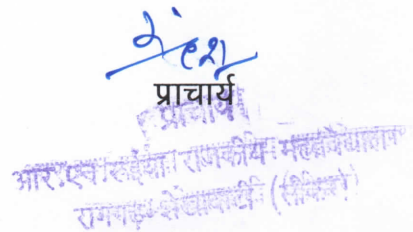 प्राचार्य
प्राचार्य
आर. एन. रुईया राजकीय महाविद्यालय
रामगढ़-शेखावाटी (सीकर)